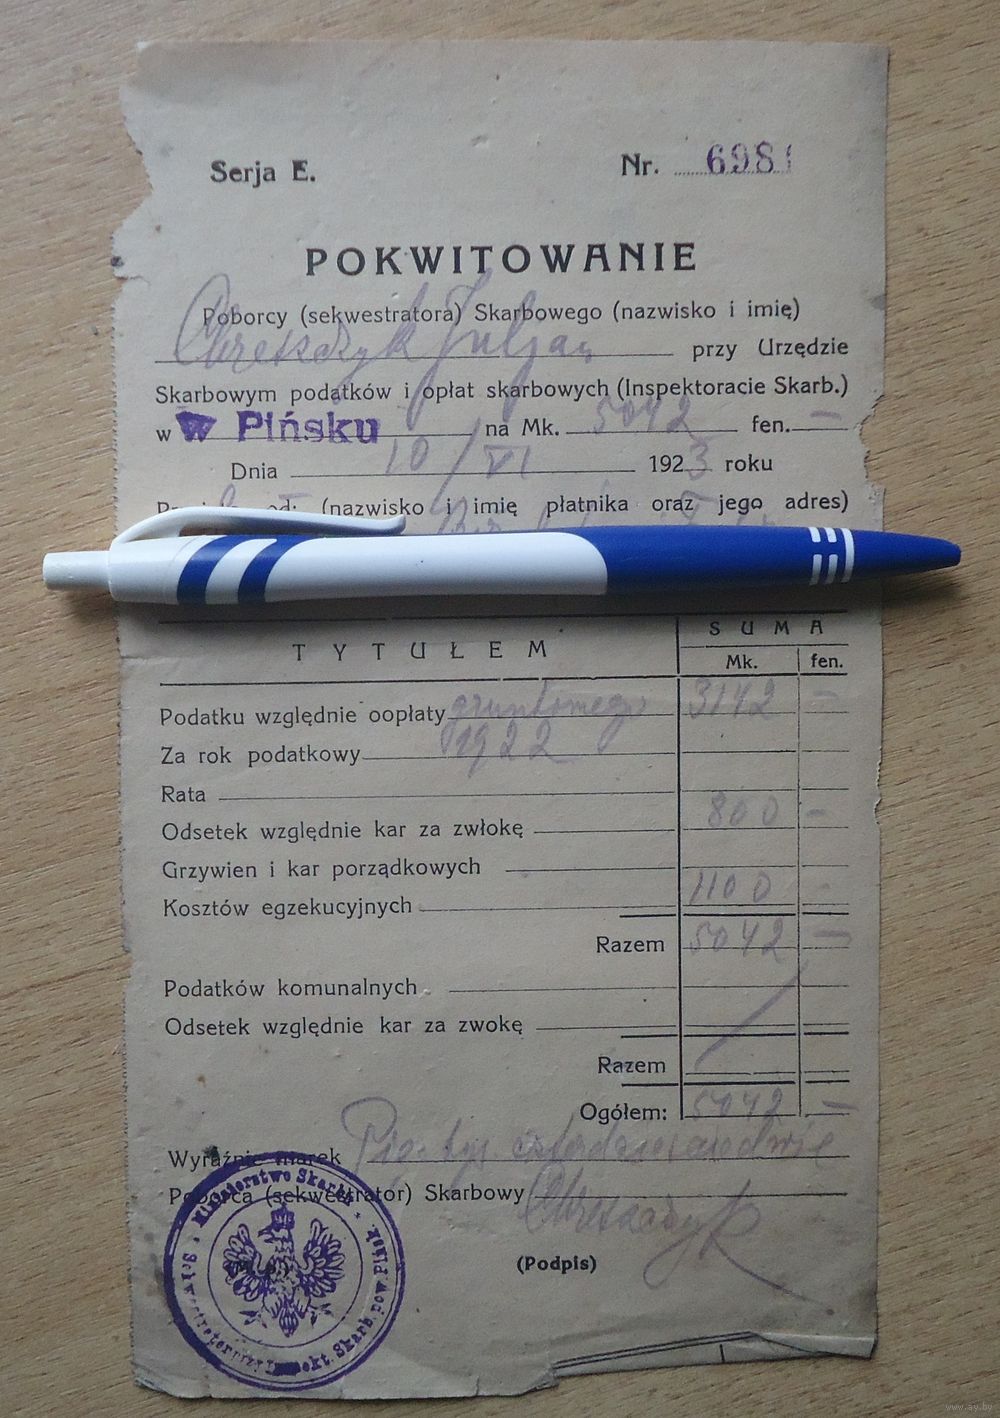 Serja E. Nr. 698
POKWITOWANIE
Poborcy (sekwestratora) Skarbowego (nazwisko i imię)
Juljan przy Urzędzie
Skarbowym podatków i opłat skarbowych (Inspektoracie Skarb.)
w W Pińsku na Mk. 5042 fen. —
Dnia 10/VI 1923 roku
od: (nazwisko i imię płatnika oraz jego adres)
TYTUŁEM SUMA
Mk. fen.
Podatku względnie oopłaty gruntowego 3142 —
Za rok podatkowy 1922
Rata
Odsetek względnie kar za zwłokę 800 —
Grzywien i kar porządkowych
Kosztów egzekucyjnych 1100 -
Razem 5042 —
Podatków komunalnych
Odsetek względnie kar za zwokę
Razem
Ogółem: 5042 —
Wyraźnie marek
Poborca (sekwestrator) Skarbowy
(Podpis)
Ministerstwo Skarbu
Skarb. pow. Pińsk.
www.ay.by